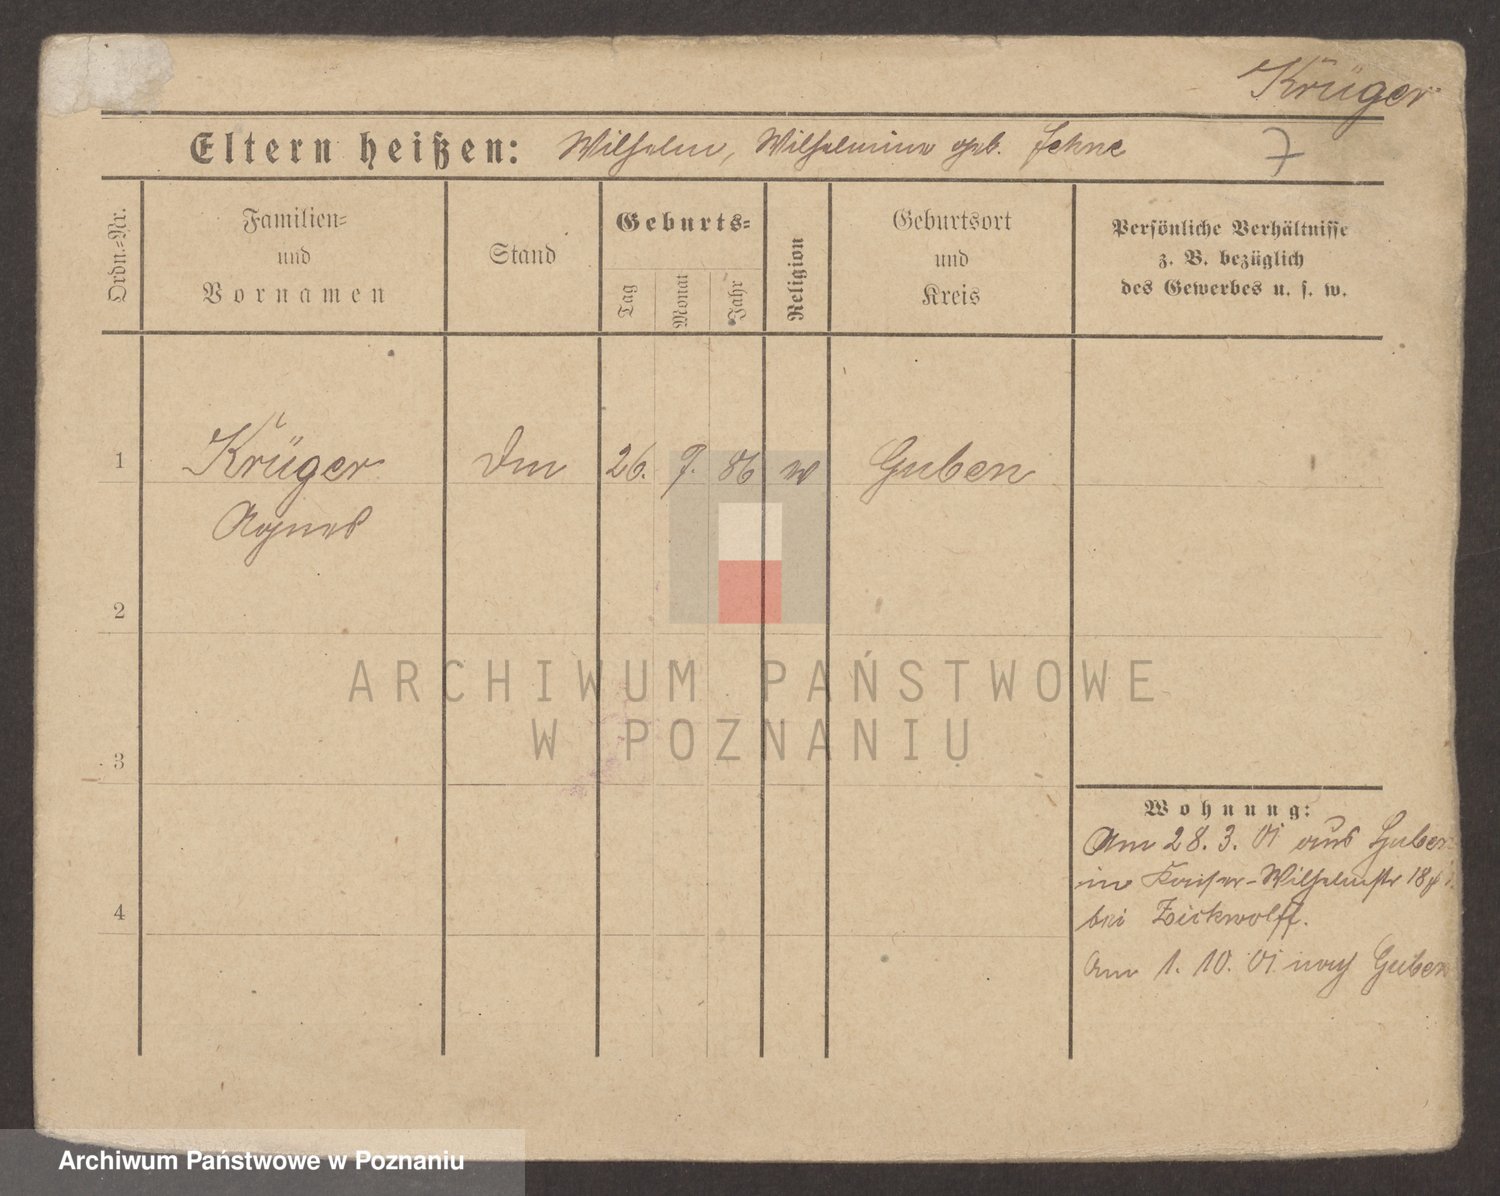 Krüger
Eltern heißen: Wilhelm, Wilhelmine geb. Jehne
7
Ordn.-Nr.
Familien-
und
Vornamen
Stand
Geburts-
Tag
Monat
Jahr
Religion
Geburtsort
und
Kreis
Persönliche Verhältnisse
z. B. bezüglich
des Gewerbes u. s. w.
1 Krüger 26. 9. 86 Guben
Agnes
2
3
4
Wohnung:
Am 28. 3. 01 aus Guben
in Kaiser-Wilhelmstr 18
bei Zickwolff.
Am 1. 10. 01 nach Guben
ARCHIWUM PAŃSTWOWE
W POZNANIU
Archiwum Państwowe w Poznaniu